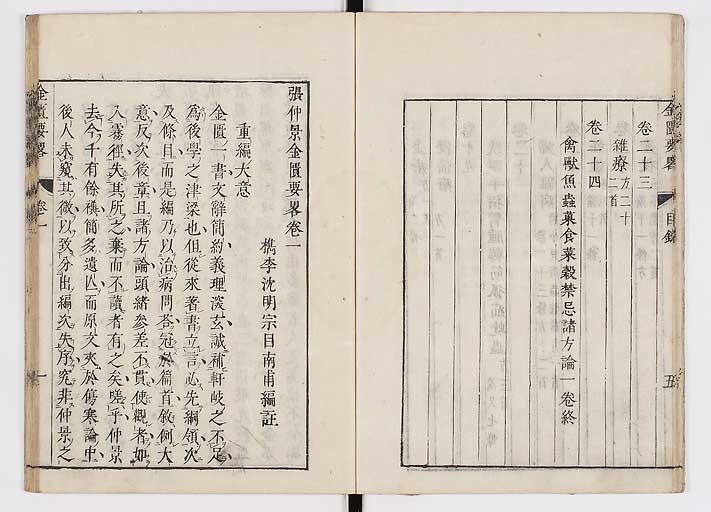 金匱要畧
目錄
五
卷二十三
雜療方二十二首
卷二十四
禽獸魚蟲菓食菜穀禁忌諸方論一卷終
張仲景金匱要畧卷一
檇李沈明宗目南甫編註
重編大意
金匱一書文辭簡約義理淡玄誠補軒岐之不足
為後學之津梁也但從來著書立言必先綱領次
及條目而是編乃以治病問荅冠於篇首敘例大
意反次後章且諸方論頭緒參差不貫使觀者如
入霧徑失其所之棄而不讀者有之矣嗟乎仲景
去今千有餘禩簡多遺亾而原文夾於傷寒論中
後人未窺其微以致分出編次失序究非仲景之
金匱要畧
卷一
一